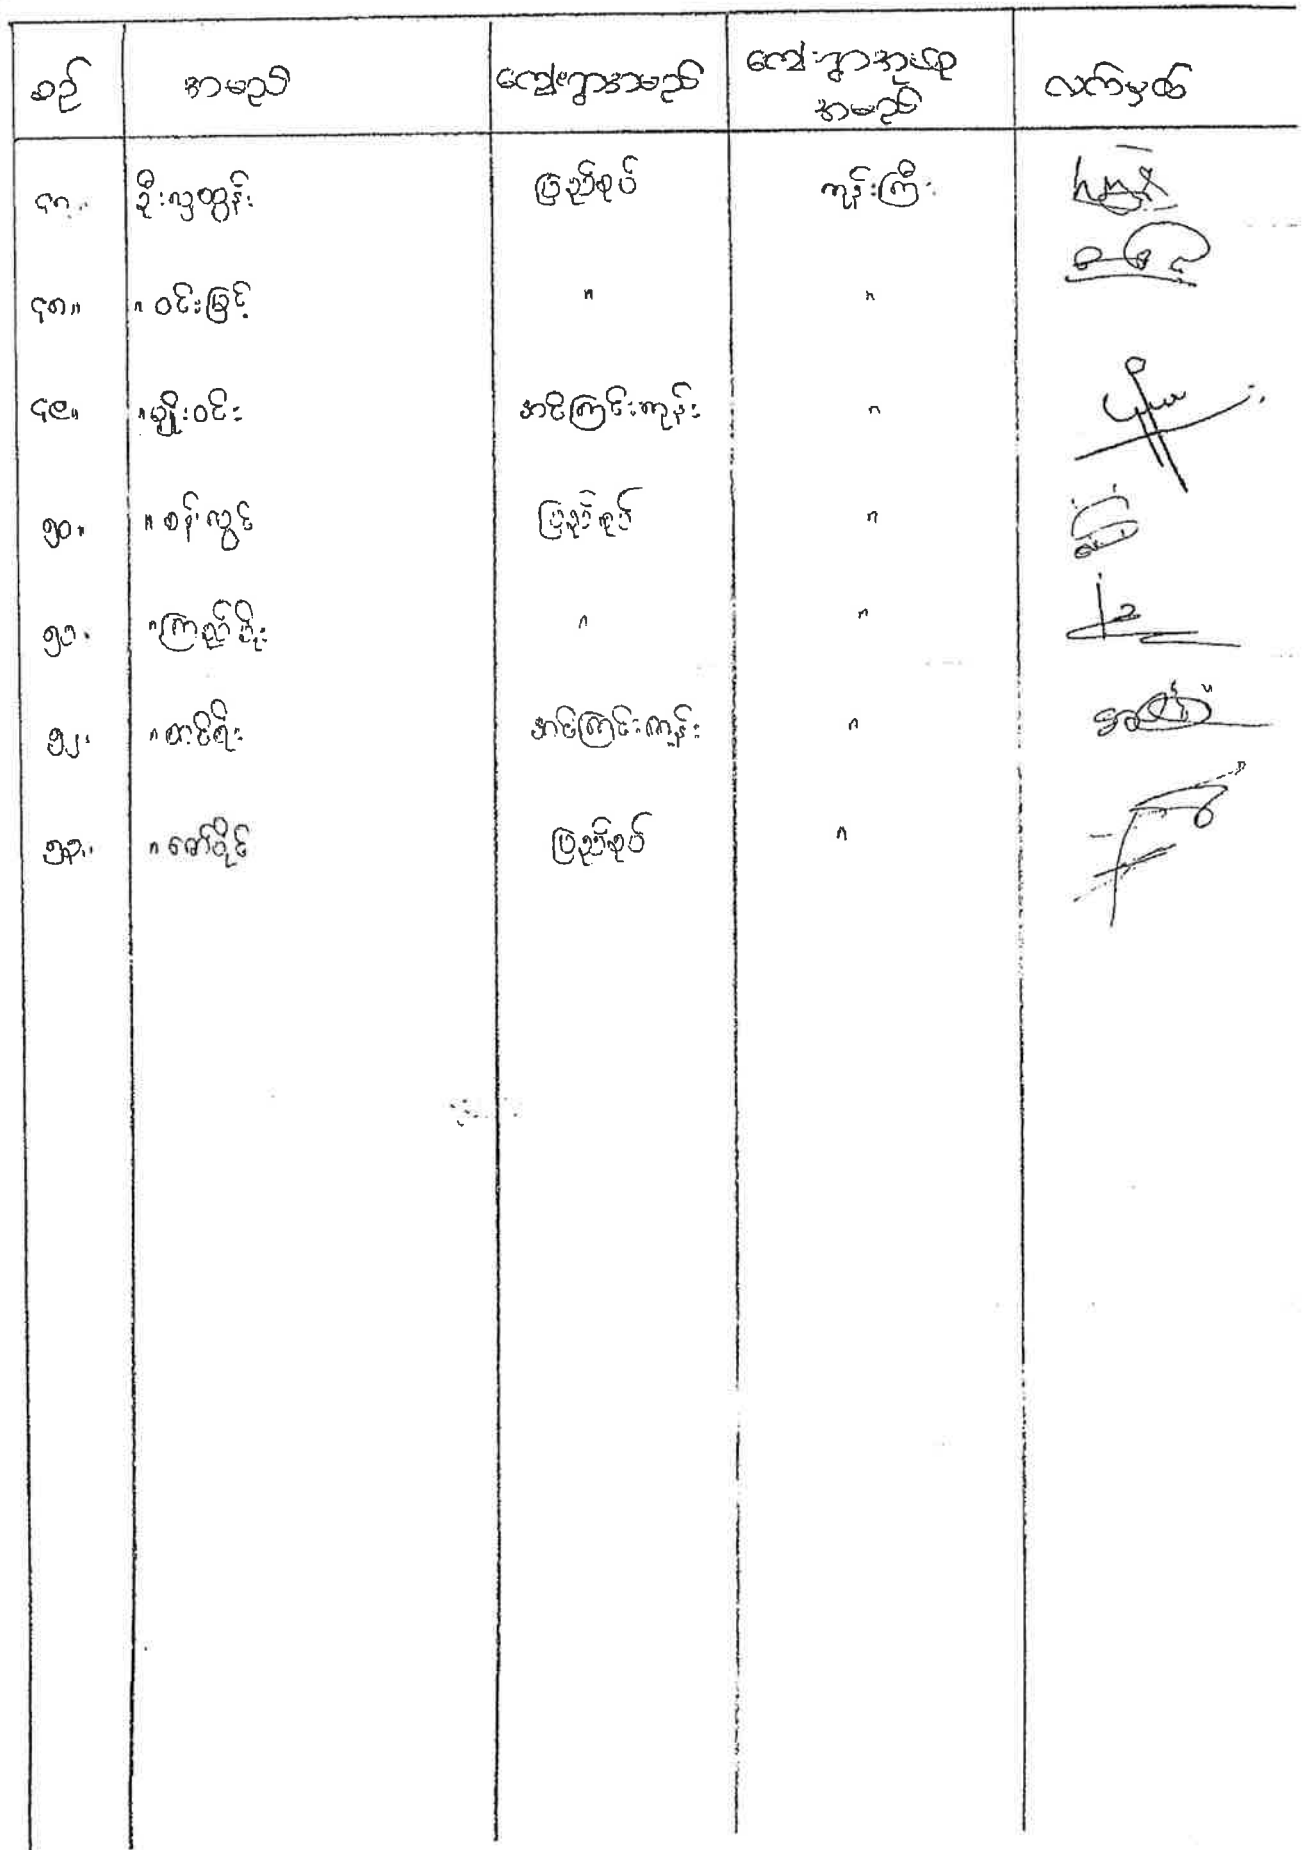 စဉ် အမည် ကျေးရွာအမည် ကျေးရွာအုပ်စု
အမည် လက်မှတ်
၄၇။ ဦးလှထွန်း ပြည်စုပ် ကုန်းကြီး
၄၈။ " ဝင်းမြင့် " "
၄၉။ " မျိုးဝင်း အင်ကြင်းကုန်း "
၅၀။ " စန်းလွင် ပြည်စုပ် "
၅၁။ " ကြည်စိုး " "
၅၂။ " တင်ရီး အင်ကြင်းကုန်း "
၅၃။ " ဇော်ဝိုင် ပြည်စုပ် "